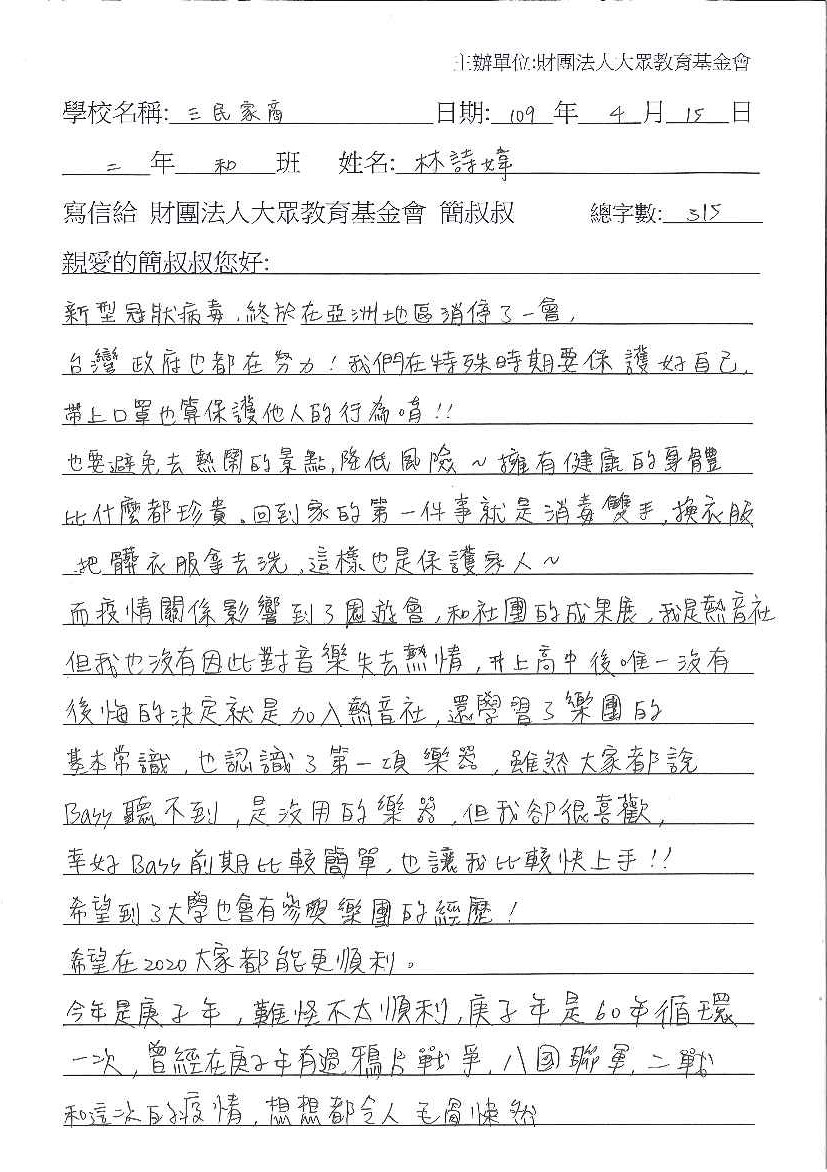 主辦單位:財團法人大眾教育基金會
學校名稱: 三民家商 日期: 109 年 4 月 15 日
二 年 和 班 姓名: 林詩婷
寫信給 財團法人大眾教育基金會 簡叔叔 總字數: 315
親愛的簡叔叔您好:
新型冠狀病毒,終於在亞洲地區消停了一會,
台灣政府也都在努力!我們在特殊時期要保護好自己,
帶上口罩也算保護他人的行為唷!!
也要避免去熱鬧的景點,降低風險~擁有健康的身體
比什麼都珍貴。回到家的第一件事就是消毒雙手,換衣服
把髒衣服拿去洗,這樣也是保護家人~
而疫情關係影響到了園遊會,和社團的成果展,我是熱音社
但我也沒有因此對音樂失去熱情,升上高中後唯一沒有
後悔的決定就是加入熱音社,還學習了樂團的
基本常識,也認識了第一項樂器,雖然大家都說
Bass聽不到,是沒用的樂器,但我卻很喜歡,
幸好Bass前期比較簡單,也讓我比較快上手!!
希望到了大學也會有參與樂團的經歷!
希望在2020大家都能更順利。
今年是庚子年,難怪不太順利,庚子年是60年循環
一次,曾經在庚子年有過鴉片戰爭,八國聯軍,二戰
和這次的疫情,想想都令人毛骨悚然